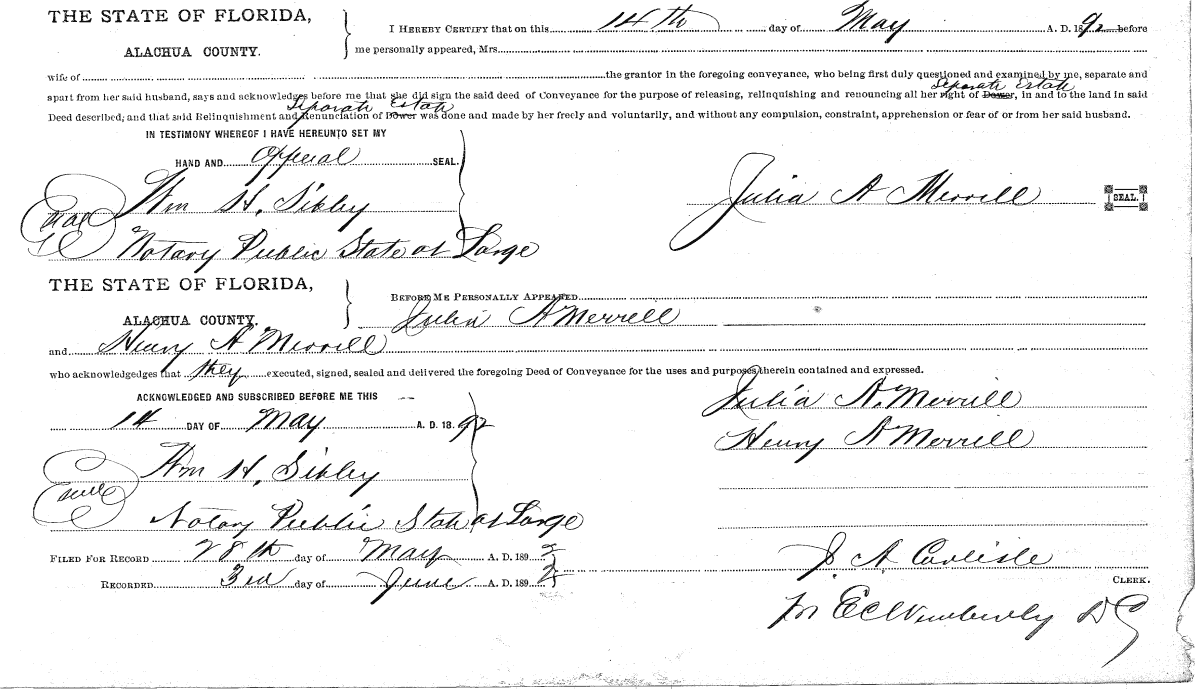 THE STATE OF FLORIDA,
ALACHUA COUNTY.
I HEREBY CERTIFY that on this 14th day of May A. D. 1892 before
me personally appeared, Mrs.
wife of the grantor in the foregoing conveyance, who being first duly questioned and examined by me, separate and
Separate Estate
apart from her said husband, says and acknowledges before me that she did sign the said deed of Conveyance for the purpose of releasing, relinquishing and renouncing all her right of Dower, in and to the land in said
Separate Estate
Deed described; and that said Relinquishment and Renunciation of Dower was done and made by her freely and voluntarily, and without any compulsion, constraint, apprehension or fear of or from her said husband.
IN TESTIMONY WHEREOF I HAVE HEREUNTO SET MY
HAND AND Official SEAL.
Wm H. Sibley
Julia A Merrill SEAL.
Seal
Notary Public State at Large
THE STATE OF FLORIDA,
ALACHUA COUNTY.
BEFORE ME PERSONALLY APPEARED
Julia A Merrill
and Henry A Merrill
who acknowledgedges that they executed, signed, sealed and delivered the foregoing Deed of Conveyance for the uses and purposes therein contained and expressed.
ACKNOWLEDGED AND SUBSCRIBED BEFORE ME THIS
Julia A. Merrill
14 DAY OF May A. D. 1892
Henry A Merrill
Wm H. Sibley
Seal
Notary Public State at Large
FILED FOR RECORD 28th day of May A. D. 1892
J A Carlisle
RECORDED 3rd day of June A. D. 1892
CLERK.
Per E C Wimberly DC